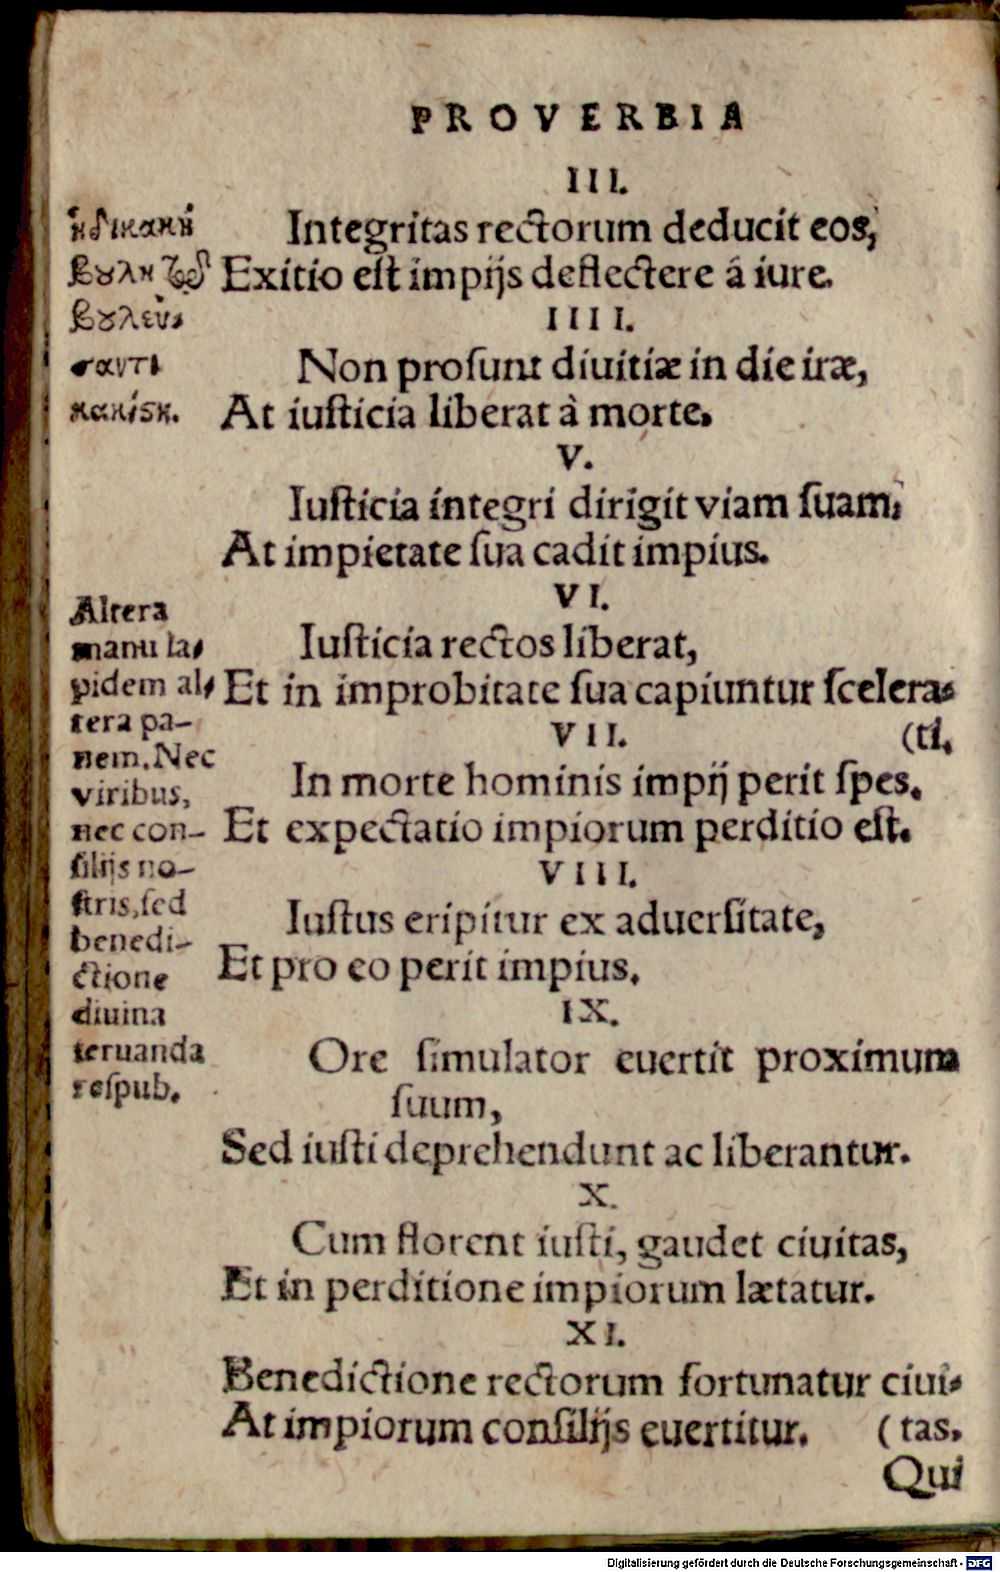 PROVERBIA
III.
Integritas rectorum deducit eos,
Exitio est impijs deflectere â iure.
IIII.
Non prosunt diuitiæ in die iræ,
At iusticia liberat à morte.
V.
Iusticia integri dirigit viam suam,
At impietate sua cadit impius.
VI.
Iusticia rectos liberat,
Et in improbitate sua capiuntur scelera-
(ti.
VII.
In morte hominis impij perit spes.
Et expectatio impiorum perditio est.
VIII.
Iustus eripitur ex aduersitate,
Et pro eo perit impius.
IX.
Ore simulator euertit proximum
suum,
Sed iusti deprehendunt ac liberantur.
X.
Cum florent iusti, gaudet ciuitas,
Et in perditione impiorum lætatur.
XI.
Benedictione rectorum fortunatur ciui-
At impiorum consilijs euertitur. (tas.
Qui
ἡ δὲ κακὴ
βουλὴ τῷ
βουλεύ-
σαντι
κακίστη.
Altera
manu la-
pidem al-
tera pa-
nem. Nec
viribus,
nec con-
silijs no-
stris, sed
benedi-
ctione
diuina
seruanda
respub.
Digitalisierung gefördert durch die Deutsche Forschungsgemeinschaft - DFG